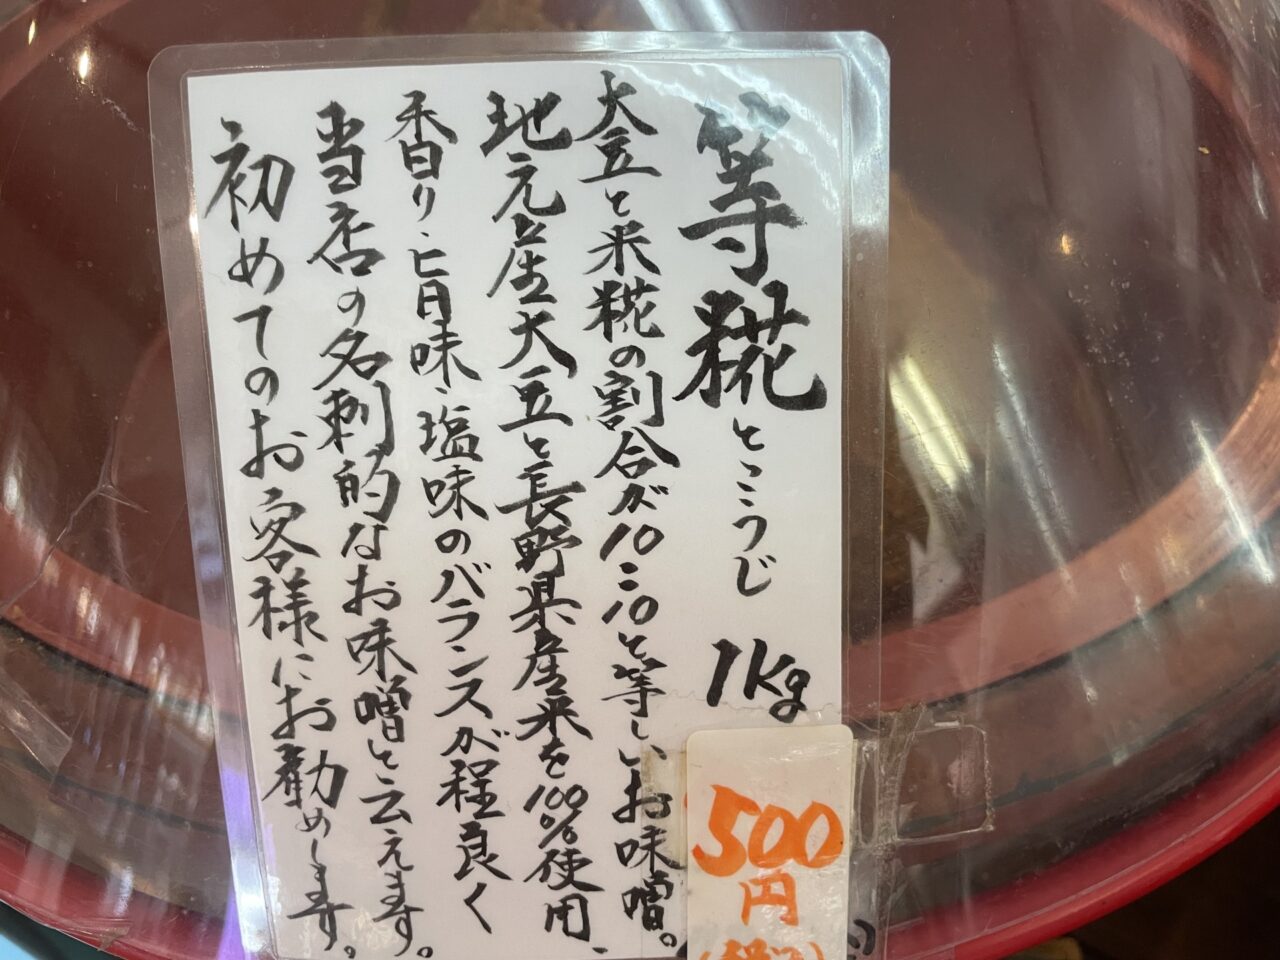 等糀とこうじ 1kg
500
円
大豆と米糀の割合が10:10と等しいお味噌。
地元産大豆と長野県産米を100%使用、
香り、旨味、塩味のバランスが程良く
当店の名刺的なお味噌と云えます。
初めてのお客様にお勧めします。